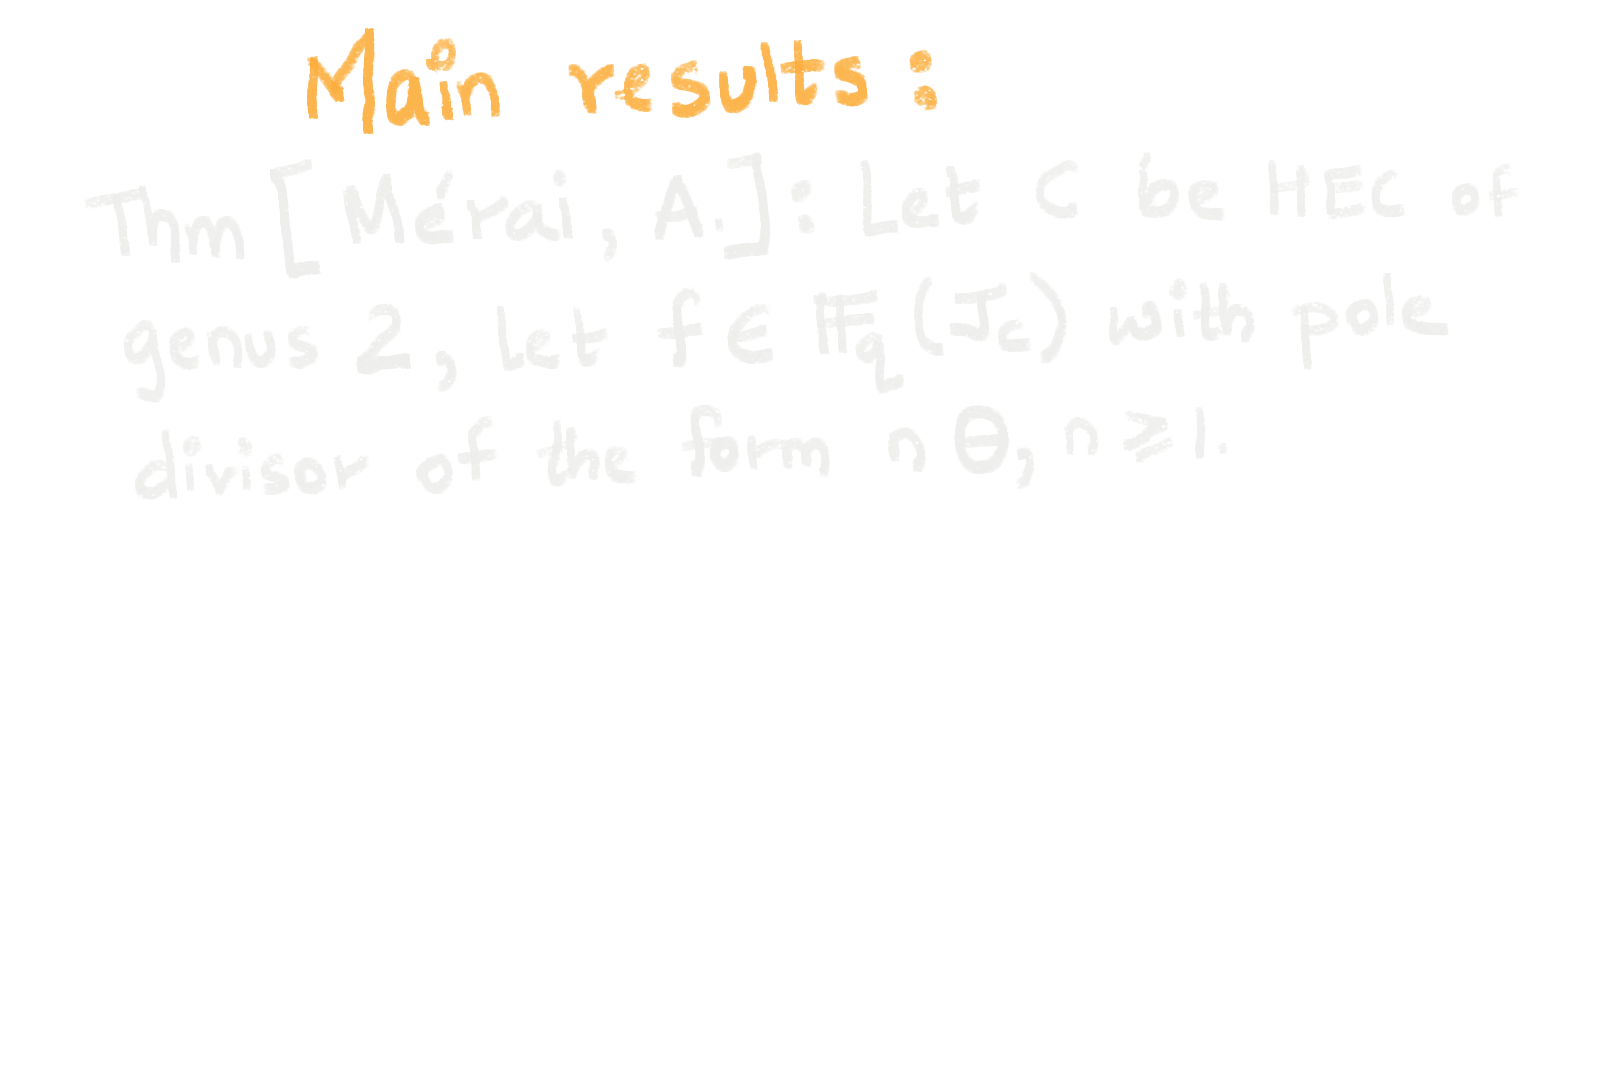 Main results:
Thm [Mérai, A.]: Let C be HEC of
genus 2, let f ∈ 𝔽q (Jc) with pole
divisor of the form n Θ, n ⩾ 1.